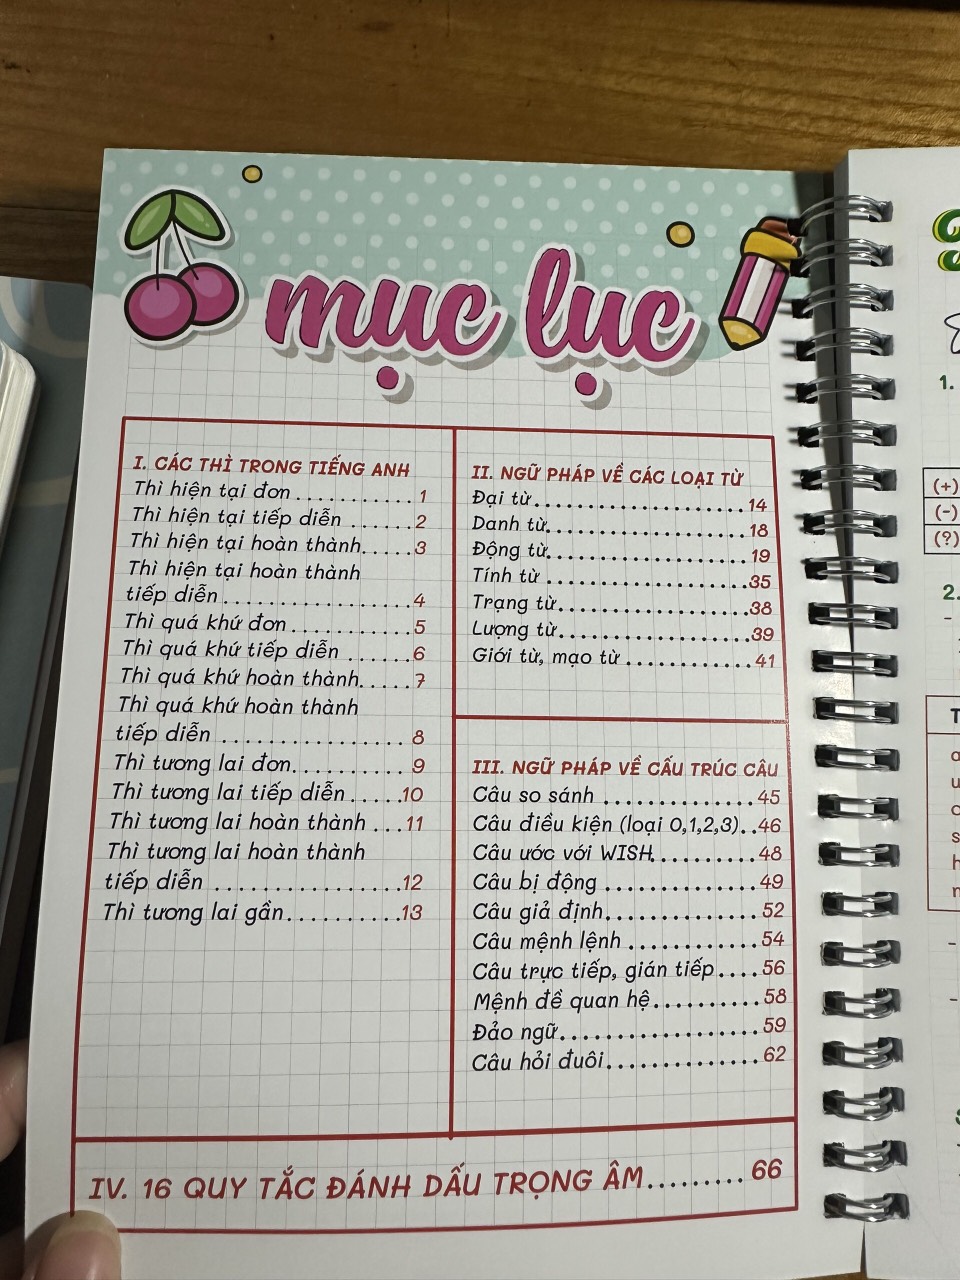 mục lục
I. CÁC THÌ TRONG TIẾNG ANH
Thì hiện tại đơn...........1
Thì hiện tại tiếp diễn ......2
Thì hiện tại hoàn thành.....3
Thì hiện tại hoàn thành
tiếp diễn .................4
Thì quá khứ đơn ...........5
Thì quá khứ tiếp diễn ......6
Thì quá khứ hoàn thành.....7
Thì quá khứ hoàn thành
tiếp diễn ................8
Thì tương lai đơn..........9
Thì tương lai tiếp diễn.....10
Thì tương lai hoàn thành ...11
Thì tương lai hoàn thành
tiếp diễn .................12
Thì tương lai gần..........13
II. NGỮ PHÁP VỀ CÁC LOẠI TỪ
Đại từ.....................14
Danh từ....................18
Động từ....................19
Tính từ ...................35
Trạng từ...................38
Lượng từ...................39
Giới từ, mạo từ ............41
III. NGỮ PHÁP VỀ CẤU TRÚC CÂU
Câu so sánh ...............45
Câu điều kiện (loại 0,1,2,3)..46
Câu ước với WISH..........48
Câu bị động ...............49
Câu giả định...............52
Câu mệnh lệnh ............54
Câu trực tiếp, gián tiếp....56
Mệnh đề quan hệ..........58
Đảo ngữ...................59
Câu hỏi đuôi..............62
IV. 16 QUY TẮC ĐÁNH DẤU TRỌNG ÂM.........66
1.
(+)
(-)
(?)
2.
-
-
-